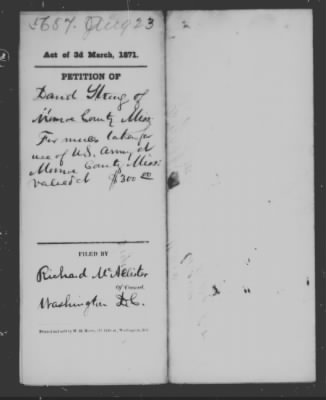 5657. Aug 23
Act of 3d March, 1871.
PETITION OF
David Strong of
Monroe County Miss
For mules taken for
use of U.S. Army at
Monroe County Miss:
valued at $300 00
FILED BY
Richard McAllister
Of Counsel,
Washington D.C.
2